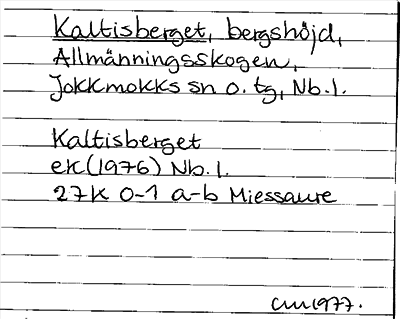 Kaltisberget, bergshöjd,
Allmänningsskogen,
Jokkmokks sn o. tg, Nb.l.
Kaltisberget
ek (1976) Nb.l.
27K 0-1 a-b Miessaure
1977.